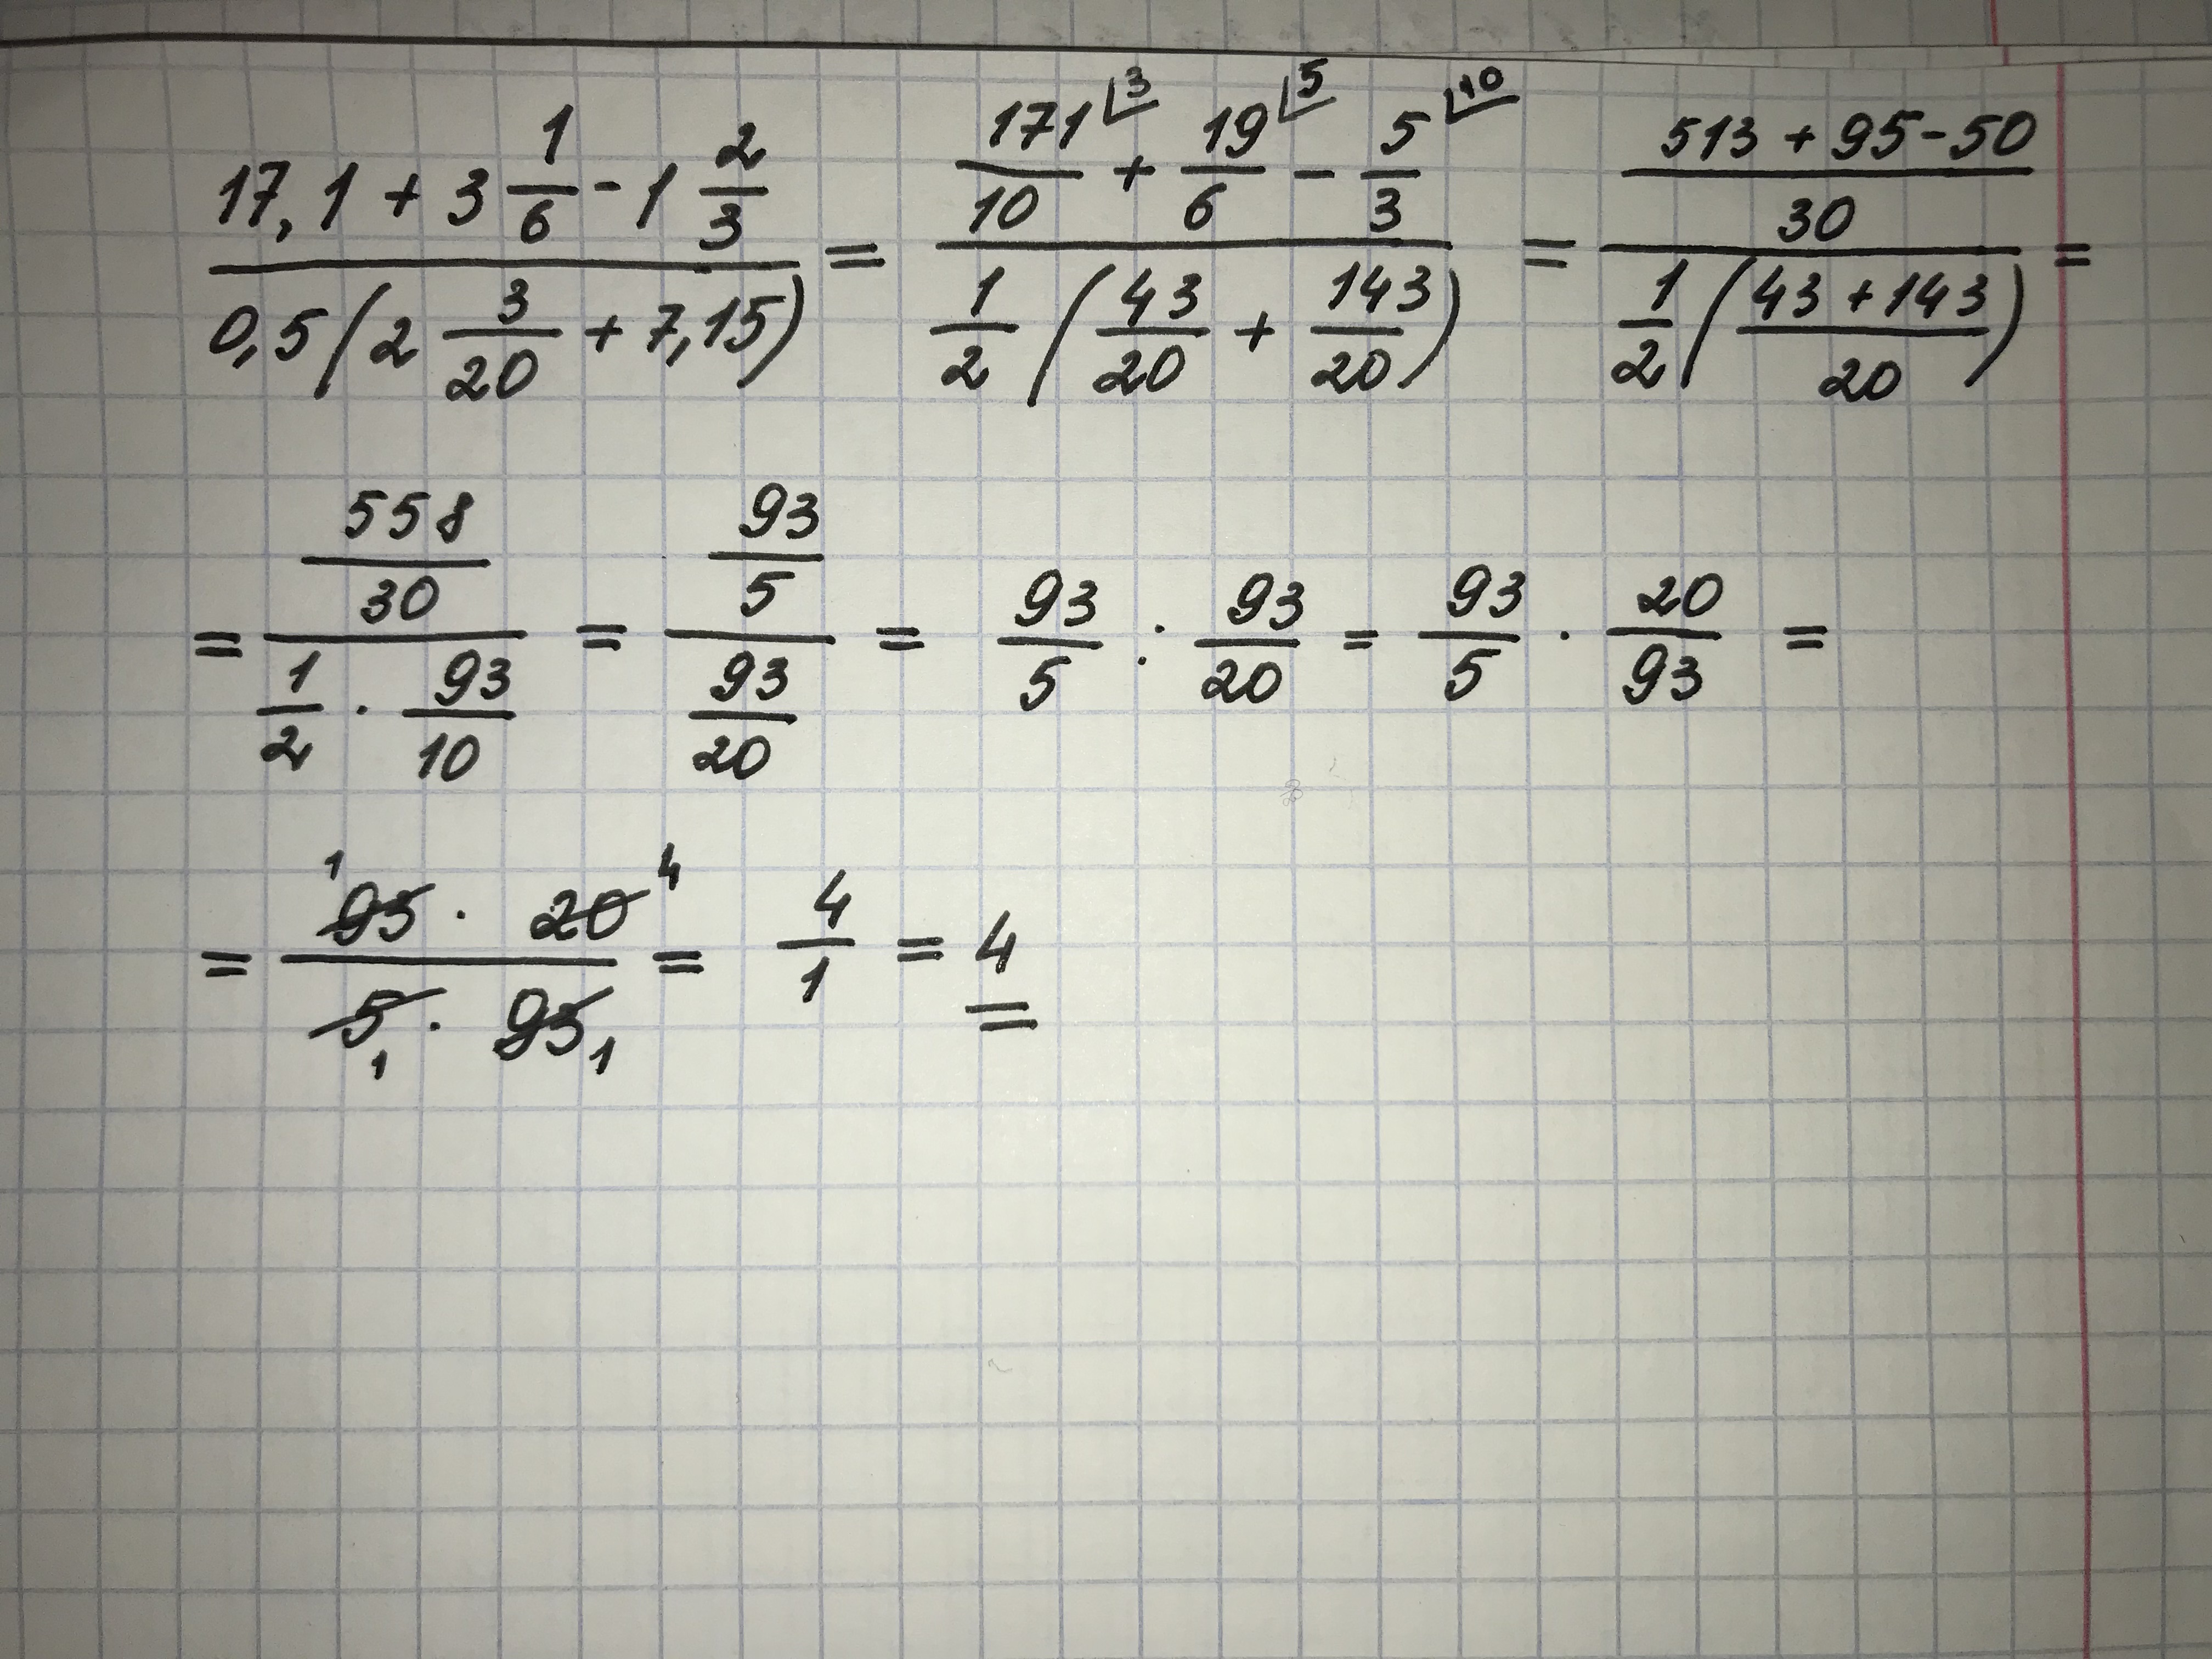 (17,1 + 3 1/6 - 1 2/3) / (0,5(2 3/20 + 7,15)) = (171/10 ⌊3 + 19/6 ⌊5 - 5/3 ⌊10) / (1/2 (43/20 + 143/20)) = ((513 + 95 - 50)/30) / (1/2 ((43 + 143)/20)) =
= (558/30) / (1/2 · 93/10) = (93/5) / (93/20) = 93/5 : 93/20 = 93/5 · 20/93 =
= (¹93 · 20⁴) / (5₁ · 93₁) = 4/1 = 4